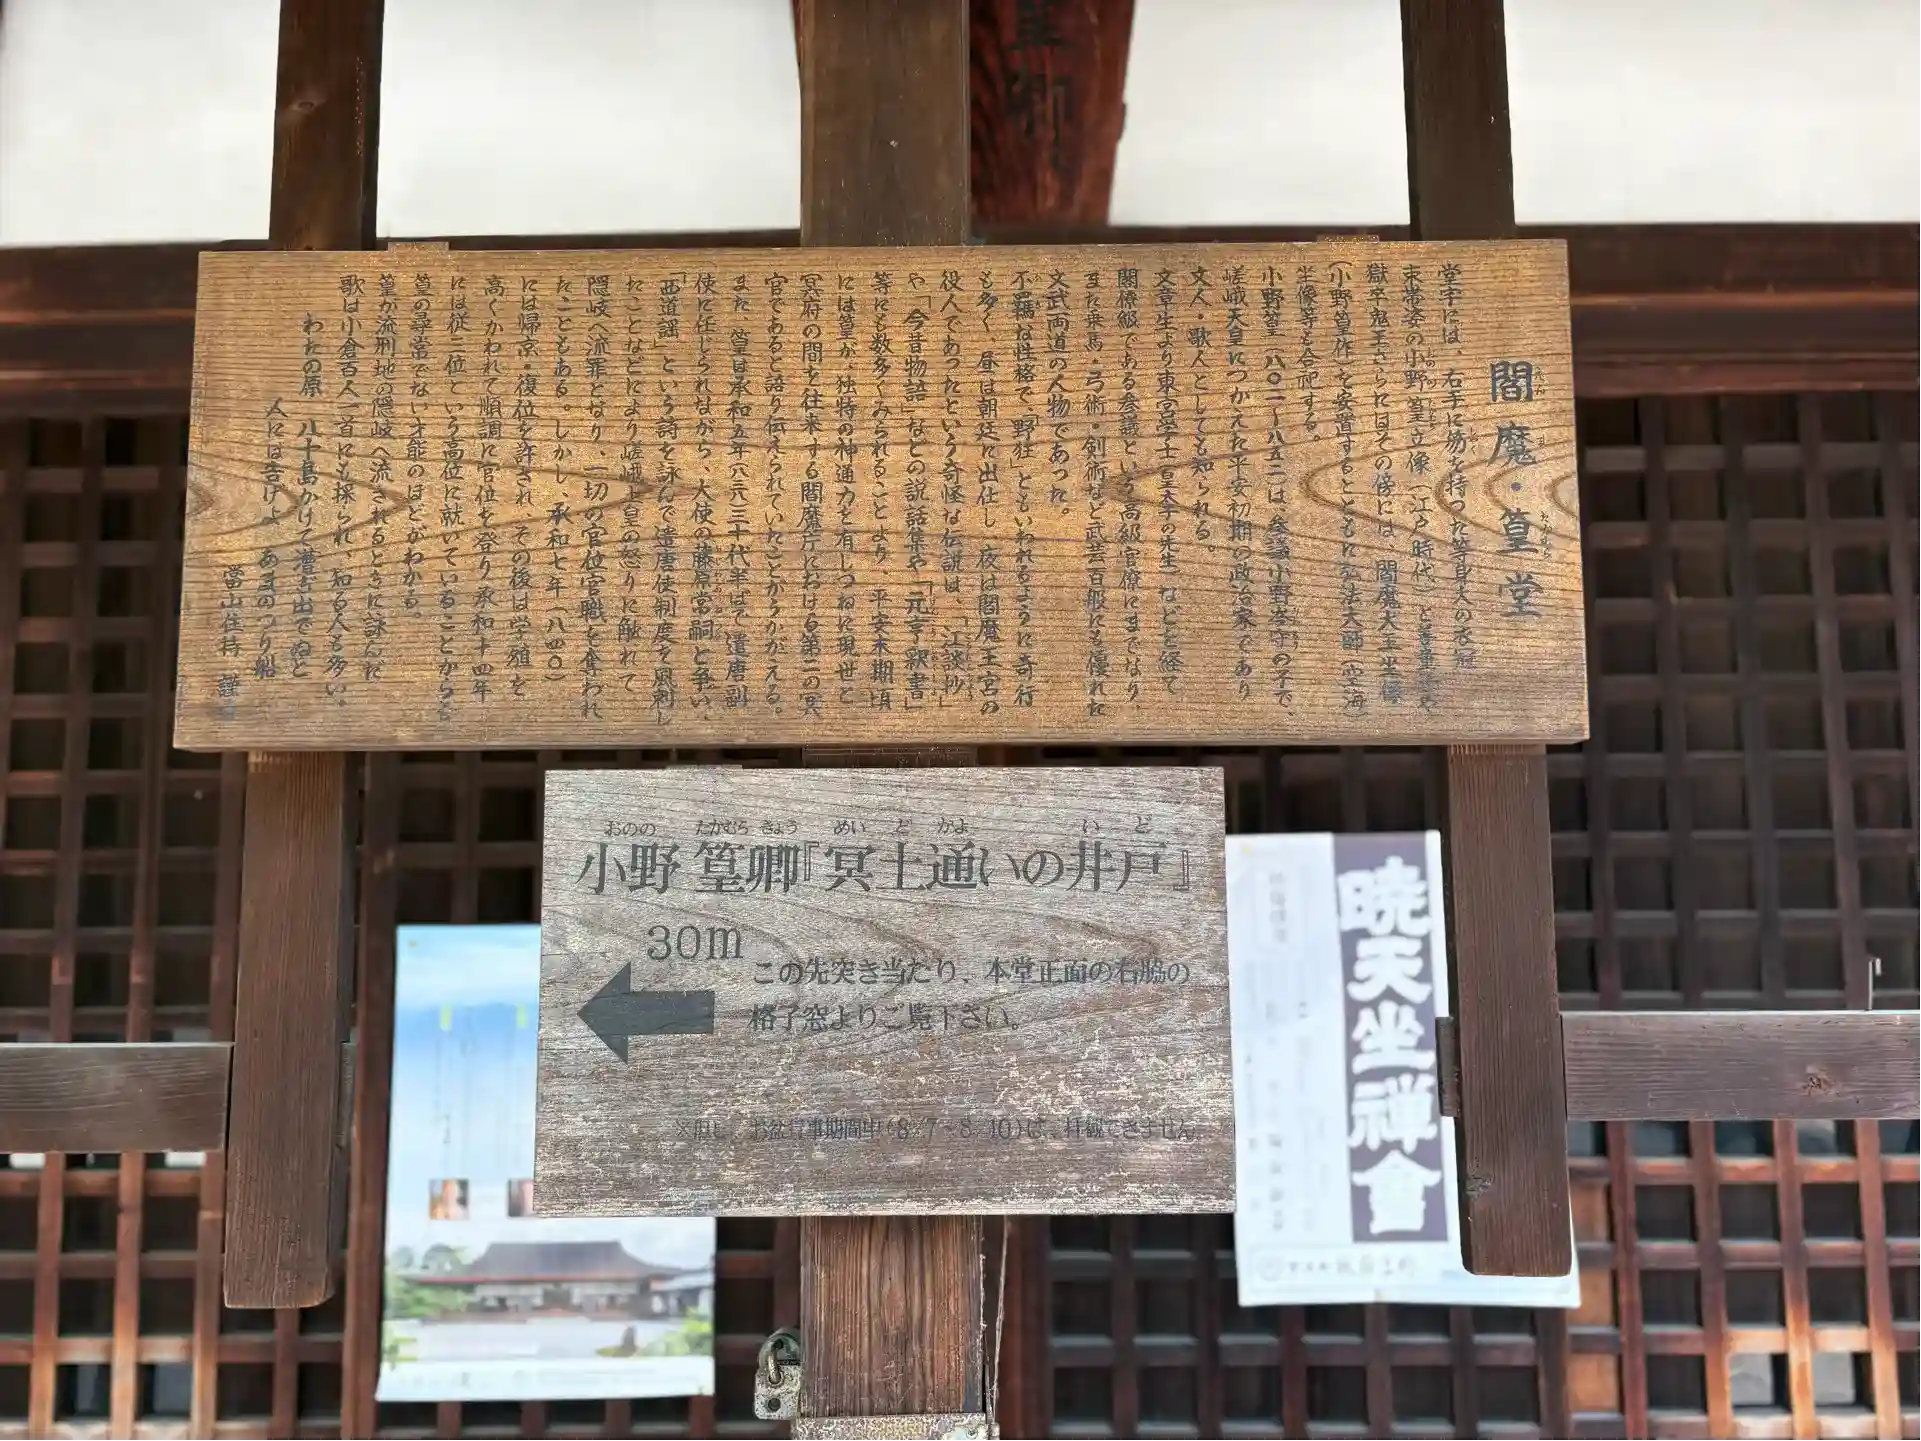 閻魔・篁堂
堂宇には、右手に笏を持った等身大の衣冠
束帯姿の小野篁立像(江戸時代)と善童子や
獄卒鬼王さらにはその傍には、閻魔大王坐像
(小野篁作)を安置するとともに弘法大師(空海)
坐像等も合祀する。
小野篁(八〇二〜八五二)は、参議小野岑守の子で、
嵯峨天皇につかえた平安初期の政治家であり
文人・歌人としても知られる。
文章生より東宮学士(皇太子の先生)などを経て
閣僚級である参議という高級官僚にまでなり、
また乗馬・弓術・剣術など武芸百般にも優れた
文武両道の人物であった。
不羈な性格で「野狂」ともいわれるように奇行
も多く、昼は朝廷に出仕し、夜は閻魔王宮の
役人であったという奇怪な伝説は、「江談抄」
や「今昔物語」などの説話集や「元亨釈書」
等にも数多くみられることより、平安末期頃
には篁が、独特の神通力を有しつねに現世と
冥府の間を往来する閻魔庁における第二の冥
官であると語り伝えられていたことがうかがえる。
また、篁は承和五年(八三八)三十代半ばで遣唐副
使に任じられながら、大使の藤原常嗣と争い、
「西道謡」という詩を詠んで遣唐使制度を風刺し
たことなどにより嵯峨上皇の怒りに触れて
隠岐へ流罪となり、一切の官位官職を奪われ
たこともある。しかし、承和七年(八四〇)
には帰京・復位を許され、その後は学殖を
高くかわれて順調に官位を登り承和十四年
には従三位という高位に就いていることからも
篁の尋常でない才能のほどがわかる。
篁が流刑地の隠岐へ流されるときに詠んだ
歌は小倉百人一首にも採られ、知る人も多い。
わたの原 八十島かけて漕ぎ出でぬと
人には告げよ あまのつり船
當山住持 謹言
おのの たかむら きょう めい ど かよ い ど
小野 篁卿『冥土通いの井戸』
30m
この先突き当たり、本堂正面の右脇の
格子窓よりご覧下さい。
※但し、お盆行事期間中(8/7~8/10)は、拝観できません。
暁天坐禅會